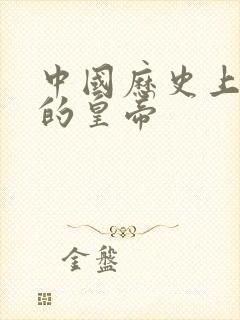 中國歷史上
的皇帝
金盤